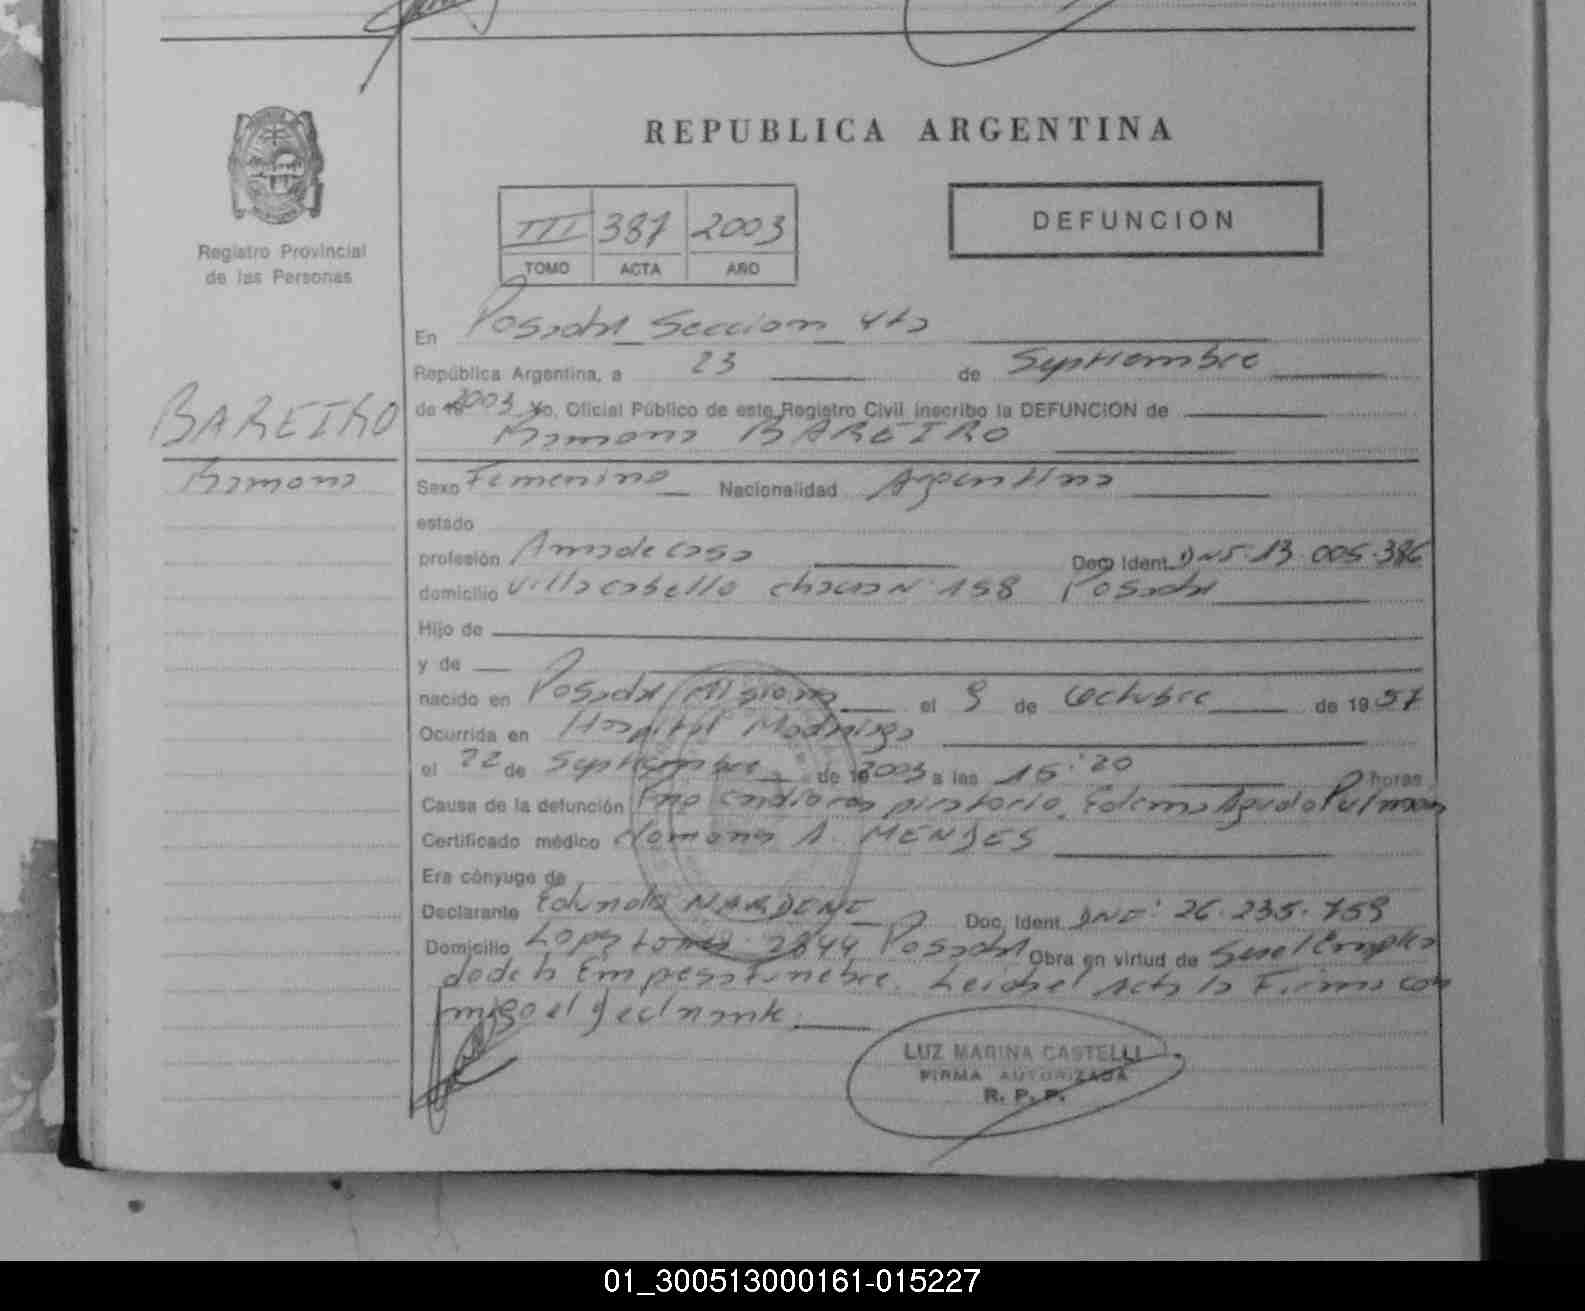 REPUBLICA ARGENTINA
Registro Provincial
de las Personas
III 387 2003
TOMO ACTA AÑO
DEFUNCION
En Posadas Seccion 4ta
República Argentina, a 23 de Septiembre
de 19 2003 Yo, Oficial Público de este Registro Civil inscribo la DEFUNCION de
BAREIRO
Ramona
Ramona BAREIRO
Sexo Femenino Nacionalidad Argentina
estado
profesión Ama de casa Doc Ident. DNI 13.005.386
domicilio Villa cabello chacra N 158 Posadas
Hijo de
y de
nacido en Posadas Misiones el 9 de Octubre de 19 57
Ocurrida en Hospital Madariaga
el 22 de Septiembre de 19 2003 a las 15:20 horas
Causa de la defunción Paro cardiorespiratorio. Edema Agudo Pulmon
Certificado médico A. MENDES
Era cónyuge de
Declarante Doc. Ident. DNI: 26.235.759
Domicilio Lopez torres 2844 Posadas Obra en virtud de Ser el Emplea
do de la Empresa funebre. Leida el Acta la Firma con
migo el declarante.
LUZ MARINA CASTELLI
FIRMA AUTORIZADA
R. P. P.
01_300513000161-015227